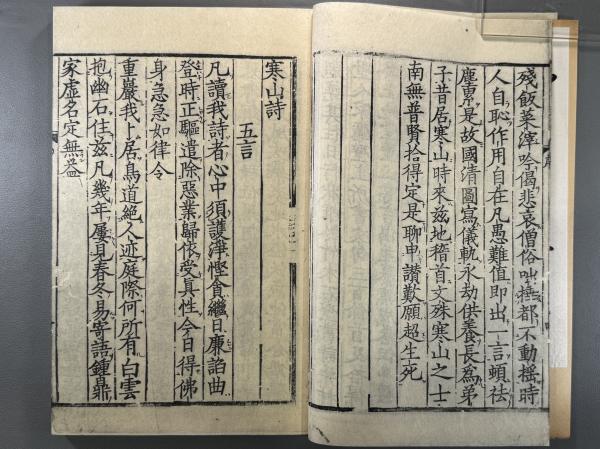 殘飯菜滓吟偈悲哀僧俗咄捶都不動搖時
人自恥作用自在凡愚難值即出一言頓祛
塵累是故國清圖寫儀軌永劫供養長為弟
子昔居寒山時來茲地稽首文殊寒山之士
南無普賢拾得定是聊申讚歎願超生死
寒山詩
五言
凡讀我詩者心中須護淨慳貪繼日廉諂曲
登時正驅遣除惡業歸依受真性今日得佛
身急急如律令
重巖我卜居鳥道絕人迹庭際何所有白雲
抱幽石住茲凡幾年屢見春冬易寄語鍾鼎
家虛名定無益